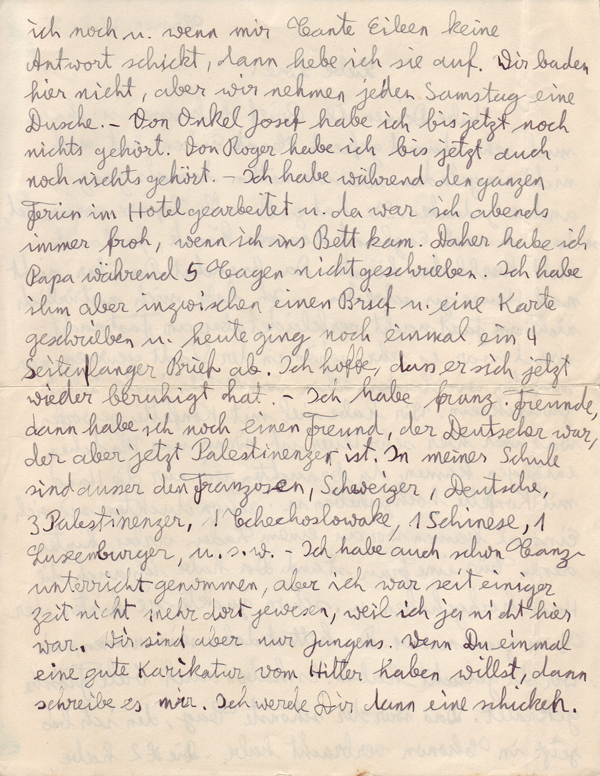 ich noch u. wenn mir Tante Eileen keine
Antwort schickt, dann hebe ich sie auf. Wir baden
hier nicht, aber wir nehmen jeden Samstag eine
Dusche. – Von Onkel Josef habe ich bis jetzt noch
nichts gehört. Von Roger habe ich bis jetzt auch
noch nichts gehört. – Ich habe während den ganzen
Ferien im Hotel gearbeitet u. da war ich abends
immer froh, wenn ich ins Bett kam. Daher habe ich
Papa während 5 Tagen nicht geschrieben. Ich habe
ihm aber inzwischen einen Brief u. eine Karte
geschrieben u. heute ging noch einmal ein 4
Seitenflanger Brief ab. Ich hoffe, dass er sich jetzt
wieder beruhigt hat. – Ich habe franz. Freunde,
dann habe ich noch einen Freund, der Deutscher war,
der aber jetzt Palestinenzer ist. In meiner Schule
sind ausser den Franzosen, Schweizer, Deutsche,
3 Palestinenzer, 1 Tchechoslowake, 1 Schinese, 1
Luxemburger, u. s. w. – Ich habe auch schon Tanz-
unterricht genommen, aber ich war seit einiger
Zeit nicht mehr dort gewesen, weil ich ja nicht hier
war. Wir sind aber nur Jungens. Wenn Du einmal
eine gute Karikatur vom Hitler haben willst, dann
schreibe es mir. Ich werde Dir dann eine schicken.